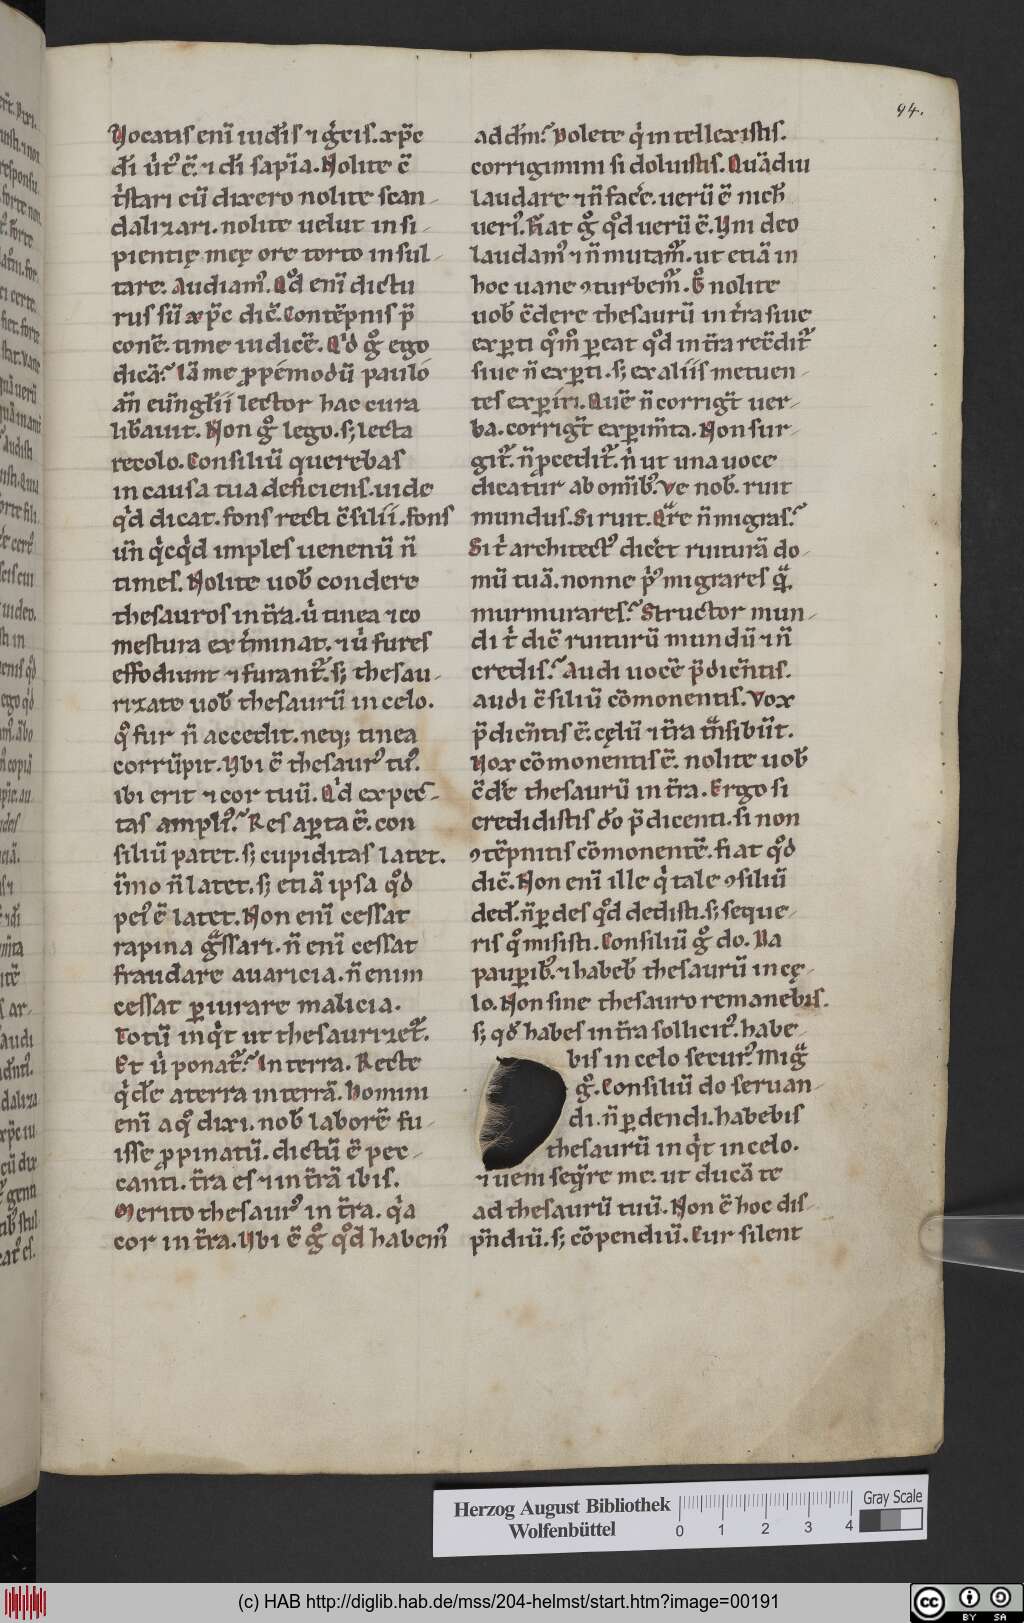 94.
Vocatis eni᷑ iudeı̃s ⁊ gͥcis. xp̄c
dı̃ uͥtꝰ ē. ⁊ dı̃ sapı̃a. Nolite ē
tͥstari cū dixero nolite scan-
dalizari. nolite uelut insi-
pientię męę ore torto insul-
tare. Audiamꝰ. Qͦd enı̄ dictu
rus sū xp̄c dic̄. Contēpnis p̄
conē. time iudicē. Qͥd gͦ ego
dicā? Iā me ꝓpemodū paulo
añ euñglii lector hac cura
lib̄auit. Non gͦ lego. s; lecta
recolo. Consiliū querebas
in causa tua deficiens. uide
qͥd dicat. fons recti c̄silii. fons
uñ qͥcqͥd imples uenenū ñ
times. Nolite uob̄ condere
thesauros in t̄ra. uͥ tinea ⁊ co
mestura extͥminat. ⁊ uͥ fures
effodiunt ⁊ furant᷑. s; thesau-
rizate uob̄ thesaurū in celo.
qͦ fur ñ accedit. neq; tinea
corrūpit. Vbi ē thesaurꝰ tuꝰ.
ibi erit ⁊ cor tuū. Qͥd expec-
tas amplꝰ? Res apta ē. con
siliū patet. s; cupiditas latet.
ı̄mo ñ latet. s; etiā ipsa qͦd
peiꝰ ē latet. Non enı̄ cessat
rapina gᷓssari. ñ enı̄ cessat
fraudare auaricia. ñ enim
cessat ꝑiurare malicia.
Totū inqͥt ut thesaurizet᷑.
Et uͥ ponat᷑? In terra. Recte
qͥdē a terra in terrā. Homini
enı̄ a qͦ dixi. nob̄ laborē fu-
isse ꝓpinatū. dictū ē pec-
canti. t̄ra es ⁊ in t̄rā ibis.
Merito thesaurꝰ in t̄ra. qͥa
cor in t̄ra. Vbi ē gͦ qͦd habemꝰ
ad dm̄? Dolete qͥ intellexistis.
corrigimini si doluistis. Quādiu
laudare ⁊ ñ facē. uerū ē nich̄
uerꝰ. Fı̄at gͦ qͦd uerū ē. Vni deo
laudamꝰ ⁊ ñ mutam᷑. ut etiā in
hoc uane ꝯturbem᷑. Gͦ nolite
uob̄ c̄dere thesaurū in t̄ra siue
exꝑti qͦm̄ ꝑeat qͦd in t̄ra recc̄dit᷑
siue ñ exꝑti. s; ex aliis metuen-
tes exꝑiri. Quē ñ corrigt̄ uer-
ba. corrigt̄ exꝑim̄ta. Non sur-
git᷑. ñ ꝓcedit᷑. nͥ ut una uoce
dicatur ab omı̄bꝰ. Ve nob̄. ruit
mundus. Si ruit. Qᷓre ñ migras?
Si tͥ architectꝰ dicet ruiturā do-
mū tuā. nonne pͥꝰ migrares qᷓ
murmurares? Structor mun-
di tͥ dic̄ ruiturū mundū ⁊ ñ
credis? Audi uocē p̄dicn̄tis.
audi c̄siliū cōmonentis. Vox
p̄dicn̄tis ē. cęlū ⁊ t̄ra tᷓnsibūt.
Vox cōmonentis ē. nolite uob̄
c̄dē thesaurū in t̄ra. Ergo si
credidistis do p̄dicenti. si non
ꝯtēpnitis cōmonentē. fiat qͦd
dic̄. Non enı̄ ille qͥ tale ꝯsiliū
ded̄. ñ ꝑdes qͦd dedisti. s; seque-
ris qͦ misisti. Consiliū gͦ do. Da
pauꝑibꝰ. ⁊ habeb̄ thesaurū in cę-
lo. Non sine thesauro remanebis.
s; qd̄ habes in t̄ra sollicitꝰ. habe-
bis in celo securꝰ. Migᷓ
gͦ. Consiliū do seruan-
di. ñ ꝑdendi. habebis
thesaurū inqͥt in celo.
⁊ ueni seqͣre me. ut ducā te
ad thesaurū tuū. Non ē hoc dis-
pn̄diū. s; cōpendiū. Cur silent
Herzog August Bibliothek
Wolfenbüttel
0 1 2 3 4
Gray Scale
(c) HAB http://diglib.hab.de/mss/204-helmst/start.htm?image=00191
cc BY SA